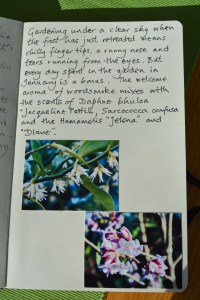 Gardening under a clear sky when
the frost has just retreated means
chilly finger tips, a runny nose and
tears running from the eyes. But
every day spent in the garden in
January is a bonus. The welcome
aroma of woodsmoke mixes with
the scents of Daphne bholua
"Jacqueline Postill", Sarcococca confusa
and the Hamamelis "Jelena" and
"Diane".